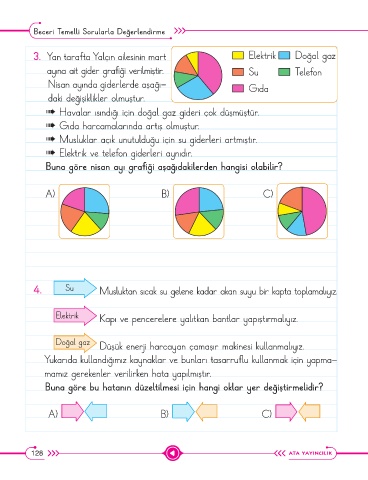 Beceri Temelli Sorularla Değerlendirme
3. Yan tarafta Yalçın ailesinin mart
ayına ait gider grafiği verilmiştir.
Nisan ayında giderlerde aşağı-
daki değişiklikler olmuştur.
Elektrik Doğal gaz
Su Telefon
Gıda
Havalar ısındığı için doğal gaz gideri çok düşmüştür.
Gıda harcamalarında artış olmuştur.
Musluklar açık unutulduğu için su giderleri artmıştır.
Elektrik ve telefon giderleri aynıdır.
Buna göre nisan ayı grafiği aşağıdakilerden hangisi olabilir?
A) B) C)
4. Su Musluktan sıcak su gelene kadar akan suyu bir kapta toplamalıyız.
Elektrik Kapı ve pencerelere yalıtkan bantlar yapıştırmalıyız.
Doğal gaz Düşük enerji harcayan çamaşır makinesi kullanmalıyız.
Yukarıda kullandığımız kaynaklar ve bunları tasarruflu kullanmak için yapma-
mamız gerekenler verilirken hata yapılmıştır.
Buna göre bu hatanın düzeltilmesi için hangi oklar yer değiştirmelidir?
A) B) C)
128 ATA YAYINCILIK